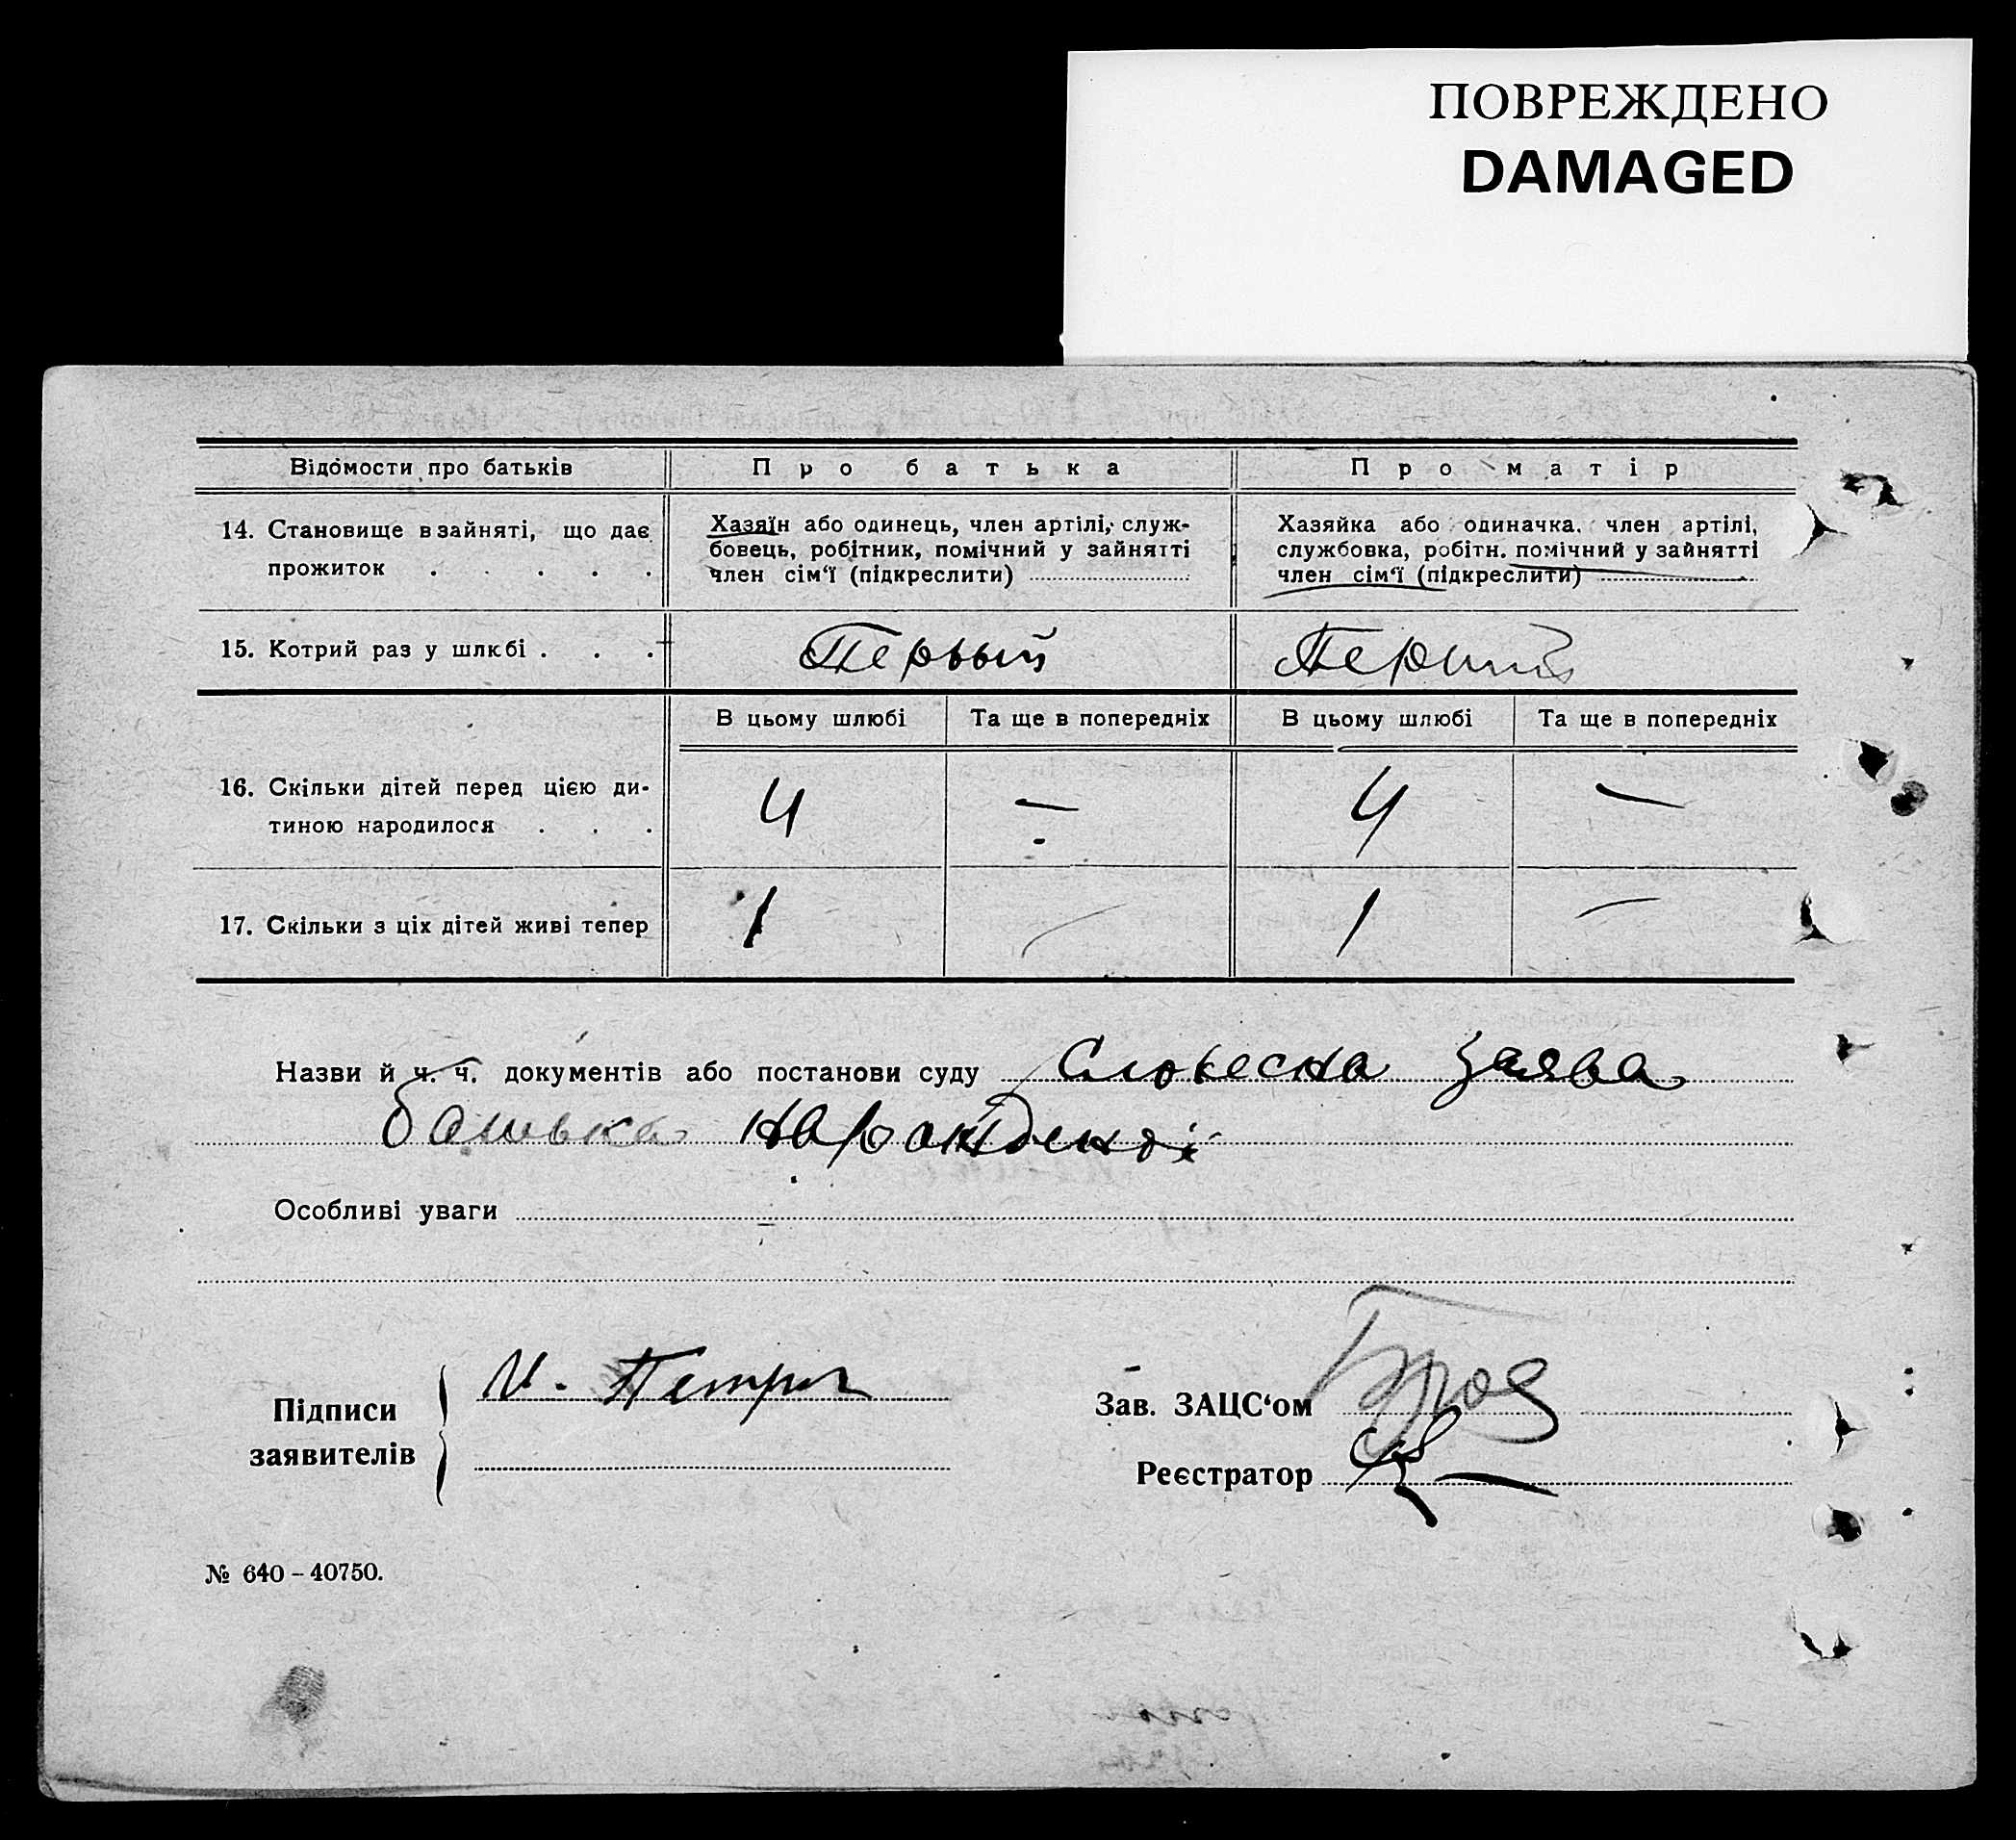 ПОВРЕЖДЕНО
DAMAGED
Відомости про батьків Про батька Про матір
14. Становище в зайняті, що дає прожиток . . . . .
Хазяїн або одинець, член артілі, служ-
бовець, робітник, помічний у зайнятті
член сім‘ї (підкреслити)
Хазяйка або одиначка, член артілі,
службовка, робітн. помічний у зайнятті
член сім‘ї (підкреслити)
15. Котрий раз у шлюбі . . . Первый Перший
В цьому шлюбі Та ще в попередніх В цьому шлюбі Та ще в попередніх
16. Скільки дітей перед цією ди-
тиною народилося . . . 4 — 4 —
17. Скільки з ціх дітей живі тепер 1 — 1 —
Назви й ч. ч. документів або постанови суду Словесна заява
батька
Особливі уваги
Підписи
заявителів
И. Петрич
Зав. ЗАЦС‘ом
Реєстратор
№ 640 – 40750.